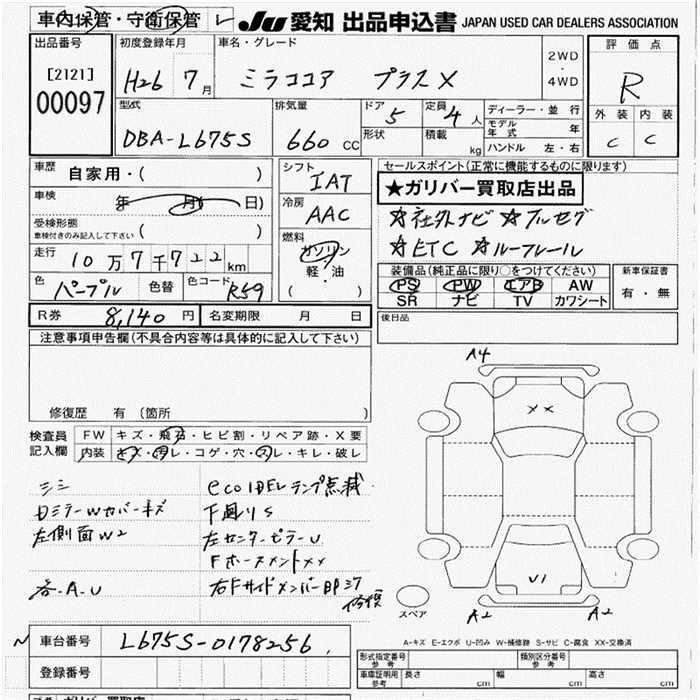 車内保管・守衛保管 レ JU 愛知 出品申込書 JAPAN USED CAR DEALERS ASSOCIATION
出品番号
[2121]
00097
初度登録年月
H26 7月
車名・グレード
ミラココア プラスX
2WD
・
4WD
評価点
R
外装 内装
C C
型式
DBA-L675S
排気量
660 cc
ドア
5
定員
4人
形状
積載
kg
ディーラー・並行
モデル年式 年
ハンドル 左・右
車歴
自家用・( )
車検
年 月 日)
受検形態
車検付きのみ記入して下さい ( )
走行
10万7千722km
色
パープル
色替
色コード
R59
シフト
IAT
冷房
AAC
燃料
ガソリン
軽・油
( )
セールスポイント(正常に機能するものに限ります)
★ガリバー買取店出品
☆社外ナビ ☆フルセグ
☆ETC ☆ルーフレール
装備品(純正品に限り○をつけてください)
PS PW エアB AW
SR ナビ TV カワシート
新車保証書
有・無
R券 8,140円
名変期限 月 日
後日品
注意事項申告欄(不具合内容等は具体的に記入して下さい)
修復歴 有(箇所 )
検査員
記入欄
FW キズ・飛石・ヒビ割・リペア跡・X要
内装 キズ・汚レ・コゲ・穴・スレ・キレ・破レ
シミ
Dミラーwカバーキズ
左側面W2
各.A.U
eco IDEレランプ点滅
下廻りS
左センターピラーU
FホースメントXX
右FサイドメンバーBP377
修復
A4
XX
U1
A2
A2
スペア
A-キズ E-エクボ U-凹み W-補修跡 S-サビ C-腐食 XX-交換済
車台番号
L675S-0178256
登録番号
形式指定番号
参考
類別区分番号
参考
車庫証明用
参考
長さ cm
幅 cm
高さ cm
ガリバー買取店